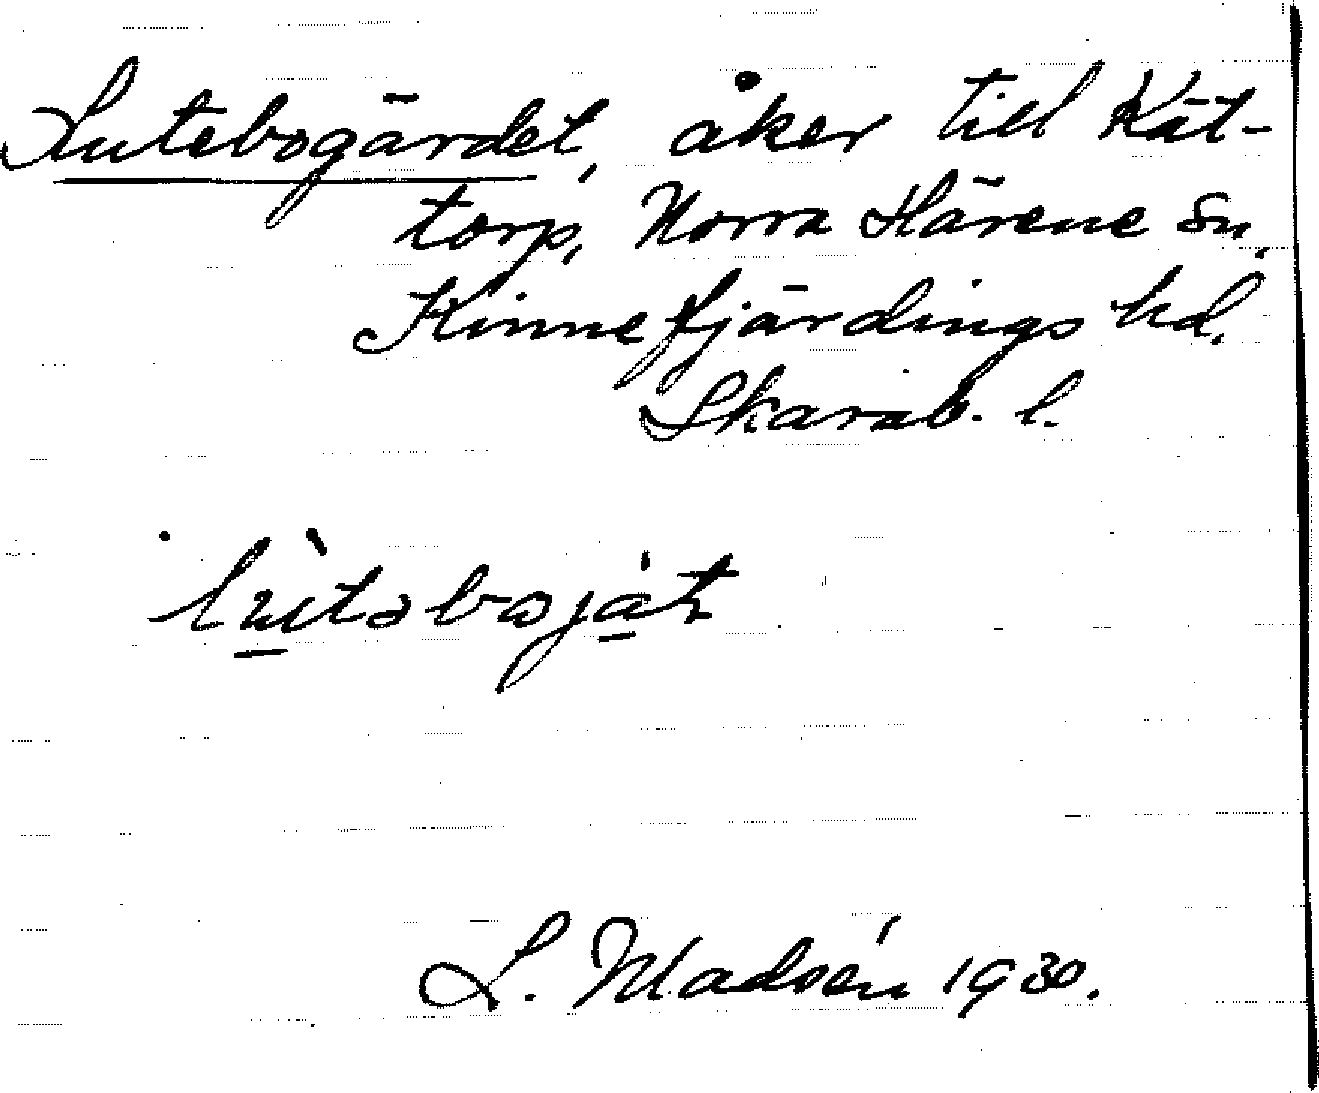 Lutebogärdet, åker till Kät-
torp, Norra Härene sn,
Kinnefjärdings hd.
Skarab. l.
L. Madsén 1930.